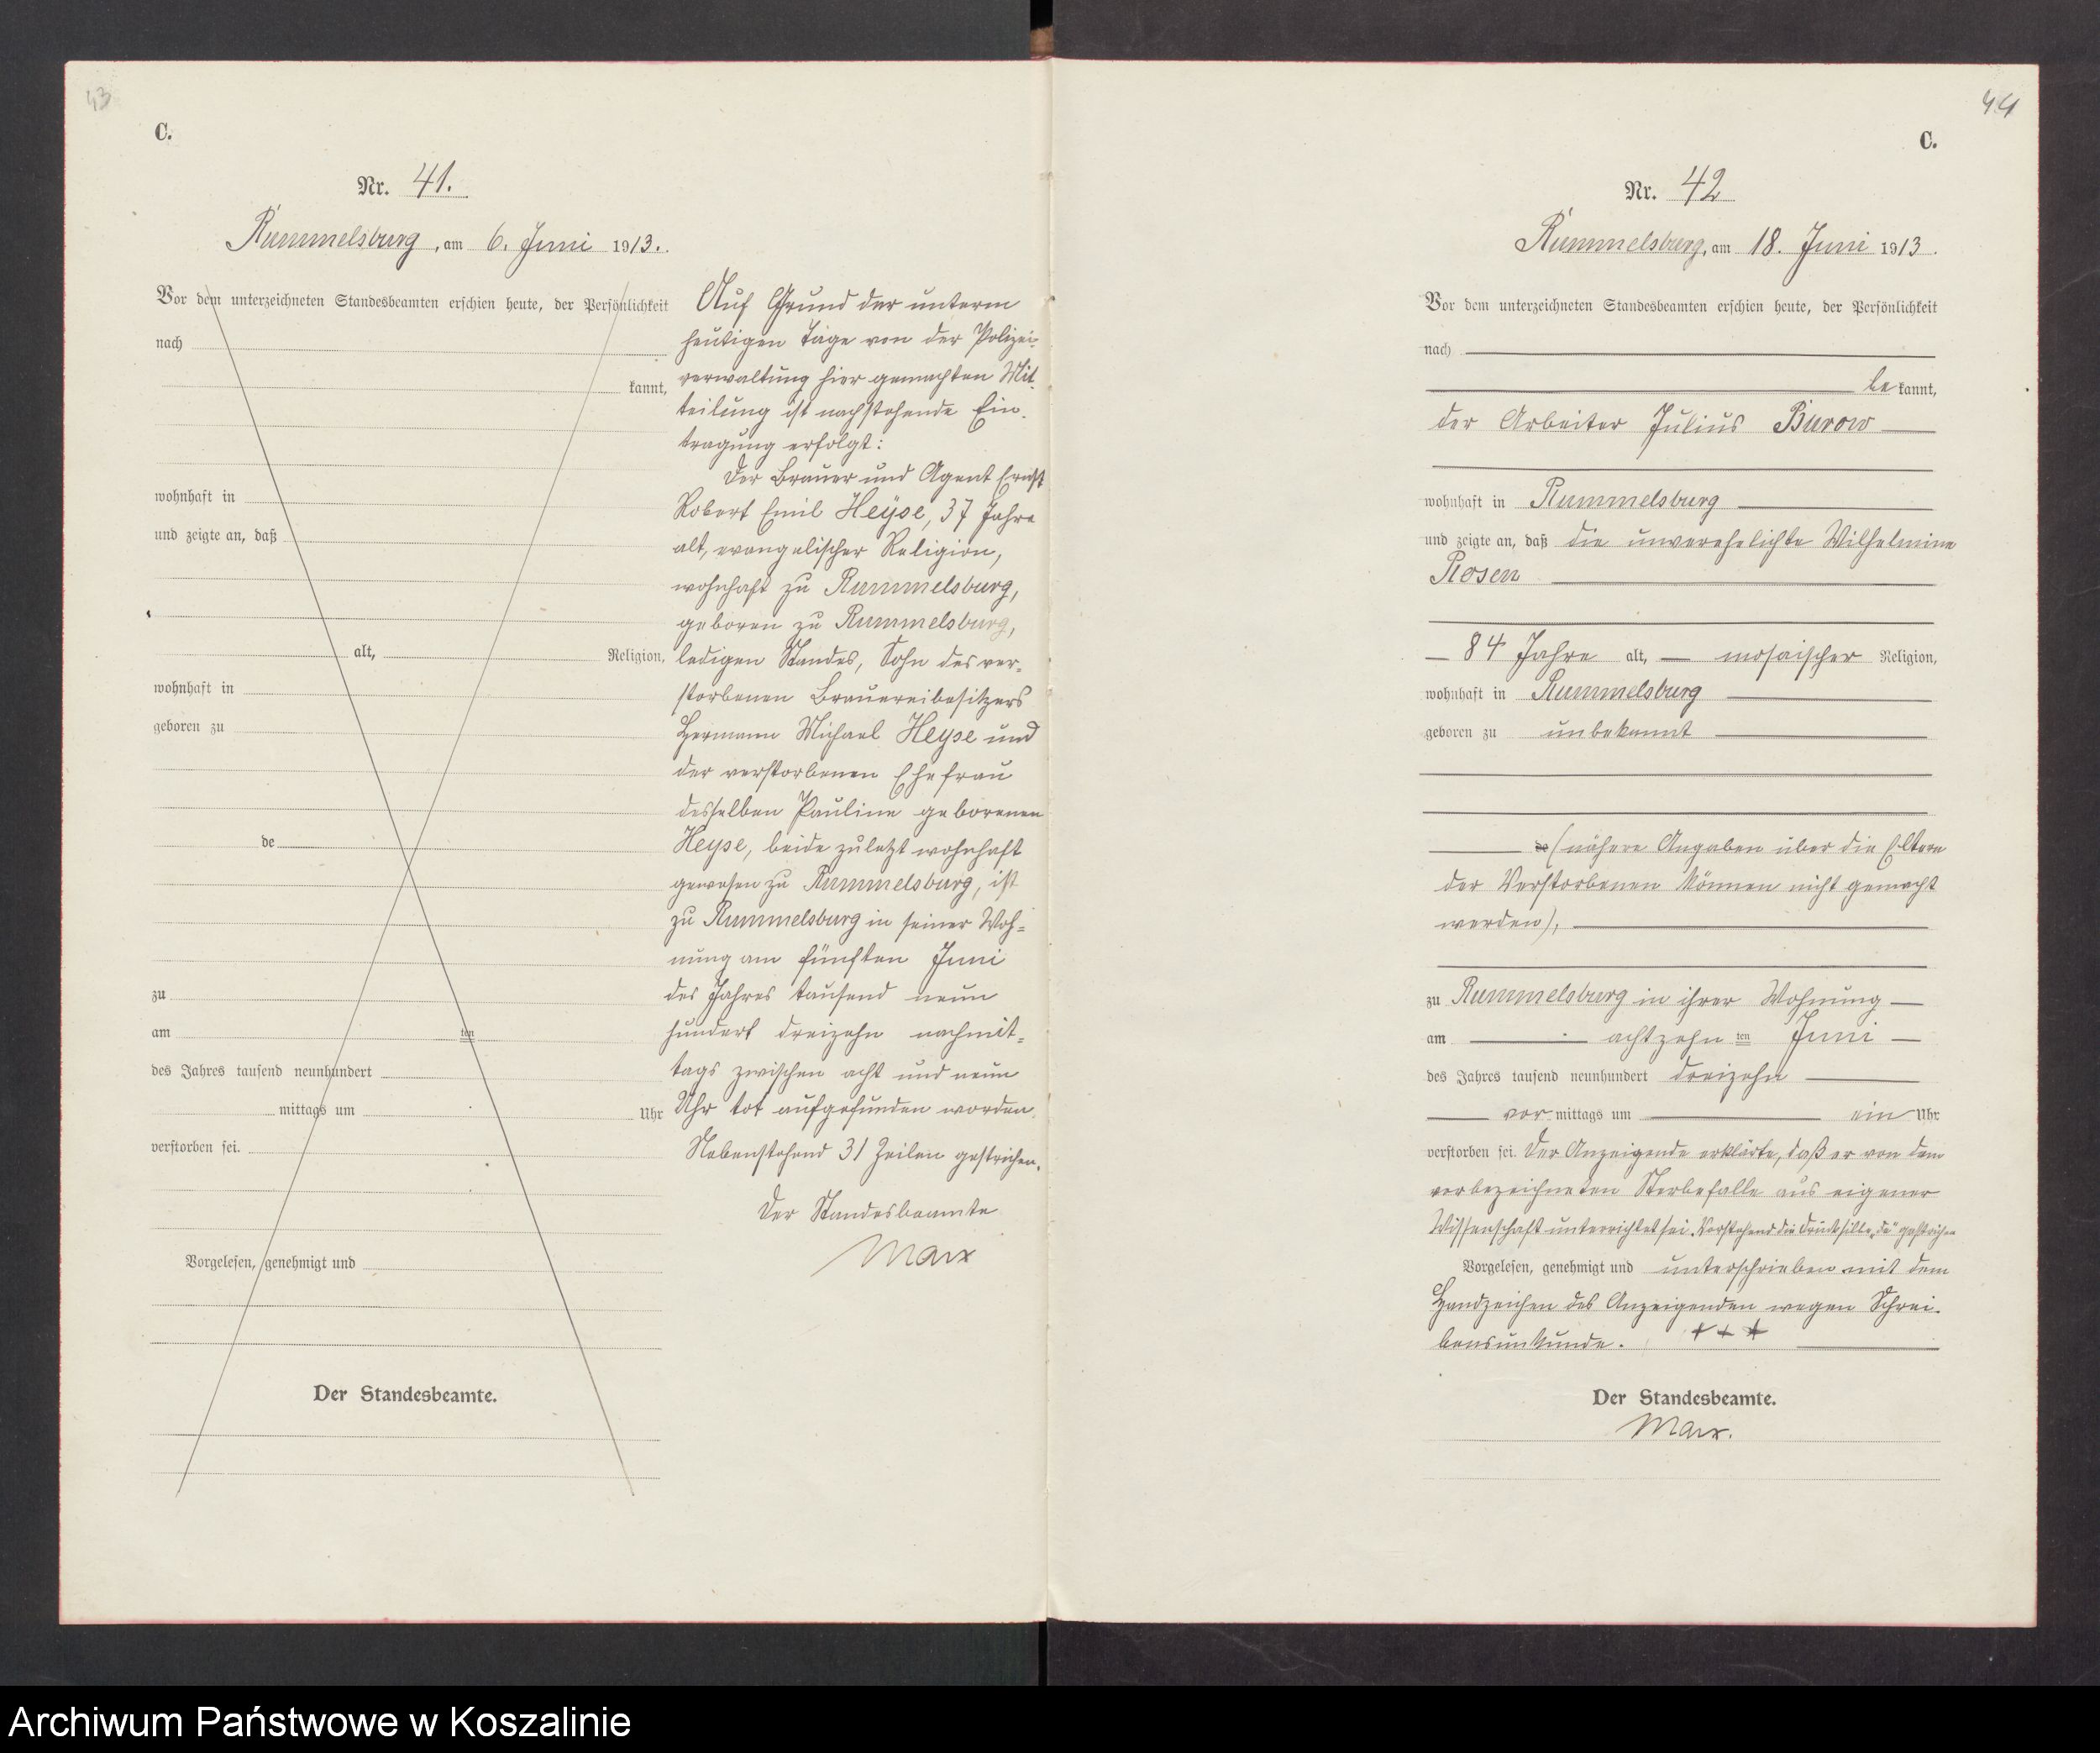 43
C.
Nr. 41.
Rummelsburg, am 6. Juni 1913.
Vor dem unterzeichneten Standesbeamten erschien heute, der Persönlichkeit
nach
kannt,
wohnhaft in
und zeigte an, daß
alt, Religion,
wohnhaft in
geboren zu
de
zu
am ten
des Jahres tausend neunhundert
mittags um Uhr
verstorben sei.
Vorgelesen, genehmigt und
Der Standesbeamte.
Auf Grund der unterm
heutigen Tage von der Polizei-
verwaltung hier gemachten Mit-
teilung ist nachstehende Ein-
tragung erfolgt:
Der Brauer und Agent Ernst
Robert Emil Heyse, 37 Jahre
alt, evangelischer Religion,
wohnhaft zu Rummelsburg,
geboren zu Rummelsburg,
ledigen Standes, Sohn des ver-
storbenen Brauereibesitzers
Hermann Michael Heyse und
der verstorbenen Ehefrau
desselben Pauline geborenen
Heyse, beide zuletzt wohnhaft
gewesen zu Rummelsburg, ist
zu Rummelsburg in seiner Woh=
nung am fünften Juni
des Jahres tausend neun
hundert dreizehn nachmit=
tags zwischen acht und neun
Uhr tot aufgefunden worden.
Nebenstehend 31 Zeilen gestrichen.
Der Standesbeamte
Marx
44
C.
Nr. 42
Rummelsburg, am 18. Juni 1913.
Vor dem unterzeichneten Standesbeamten erschien heute, der Persönlichkeit
nach
be kannt,
der Arbeiter Julius Burow
wohnhaft in Rummelsburg
und zeigte an, daß die unverehelichte Wilhelmine
Rosen
84 Jahre alt, mosaischer Religion,
wohnhaft in Rummelsburg
geboren zu unbekannt
de (nähere Angaben über die Eltern
der Verstorbenen können nicht gemacht
werden),
zu Rummelsburg in ihrer Wohnung
am achtzehn ten Juni
des Jahres tausend neunhundert dreizehn
vor mittags um ein Uhr
verstorben sei. Der Anzeigende erklärte, daß er von dem
vorbezeichneten Sterbefalle aus eigener
Wissenschaft unterrichtet sei. Vorstehend die Drucksilbe „de" gestrichen
Vorgelesen, genehmigt und unterschrieben mit dem
Handzeichen des Anzeigenden wegen Schrei-
bensunkunde. + + +
Der Standesbeamte.
Marx.
Archiwum Państwowe w Koszalinie